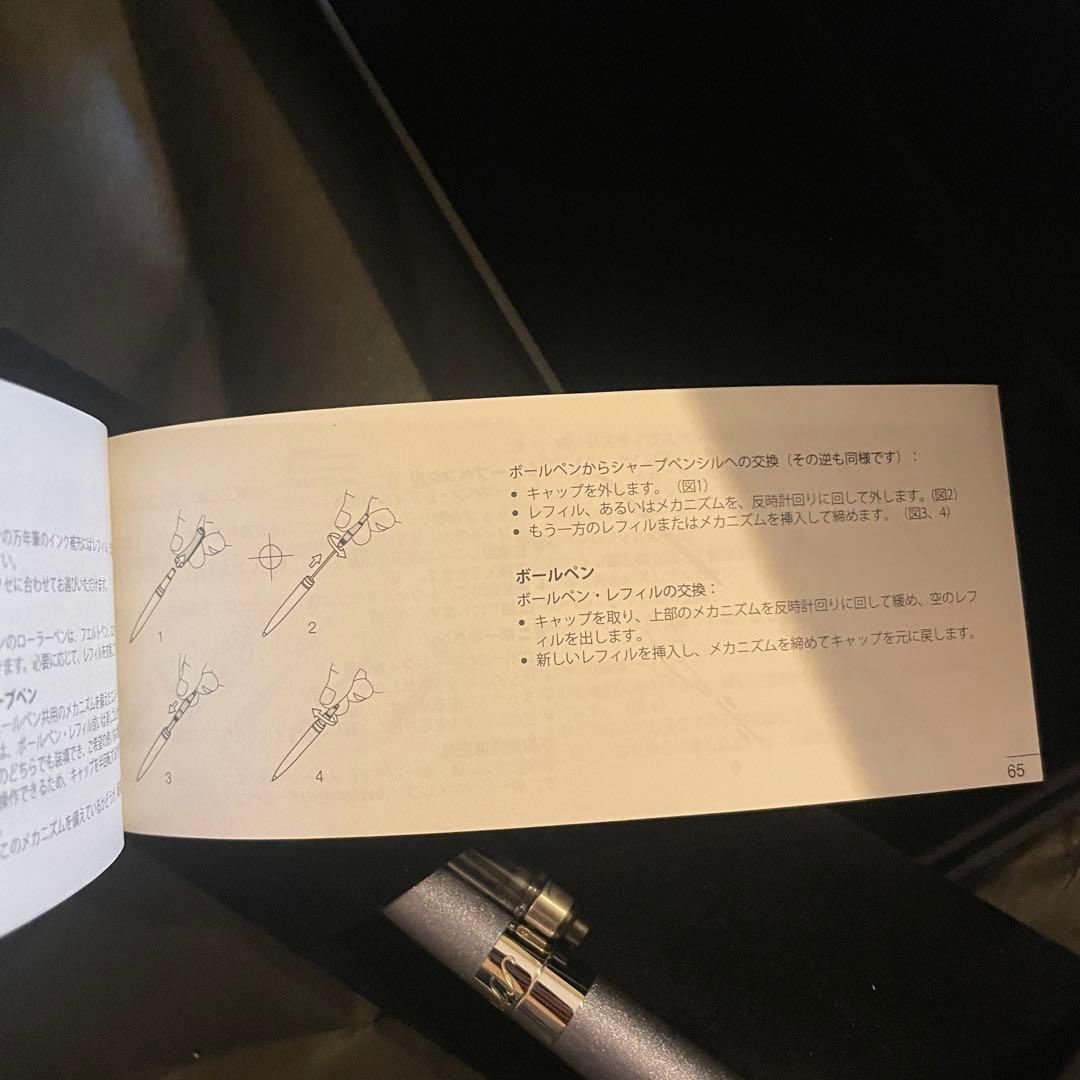 の万年筆のインク補充にはレフィル
い。
セに合わせてお選びいただけます。
ンのローラーペンは、フエルトペン、
けます。必要に応じて、レフィルを
ープペン
ールペン共用のメカニズムを備えた
は、ボールペン・レフィル或いは
のどちらでも装填でき、ご希望の
操作できるため、キャップを半回転
このメカニズムを備えているかどうか
1
2
3
4
ボールペンからシャープペンシルへの交換（その逆も同様です）：
• キャップを外します。（図1）
• レフィル、あるいはメカニズムを、反時計回りに回して外します。(図2)
• もう一方のレフィルまたはメカニズムを挿入して締めます。（図3、4）
ボールペン
ボールペン・レフィルの交換：
• キャップを取り、上部のメカニズムを反時計回りに回して緩め、空のレフ
ィルを出します。
• 新しいレフィルを挿入し、メカニズムを締めてキャップを元に戻します。
65